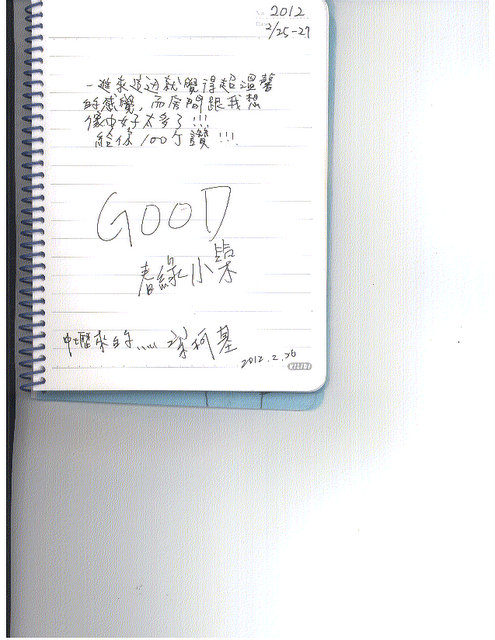 2012
2/25-27
一進來這边就覺得超溫馨
的感覺，而房間跟我想
像中好太多了!!!
給你100个讚!!!
GOOD
春綠小栄
中壢來的.....
2012.2.26